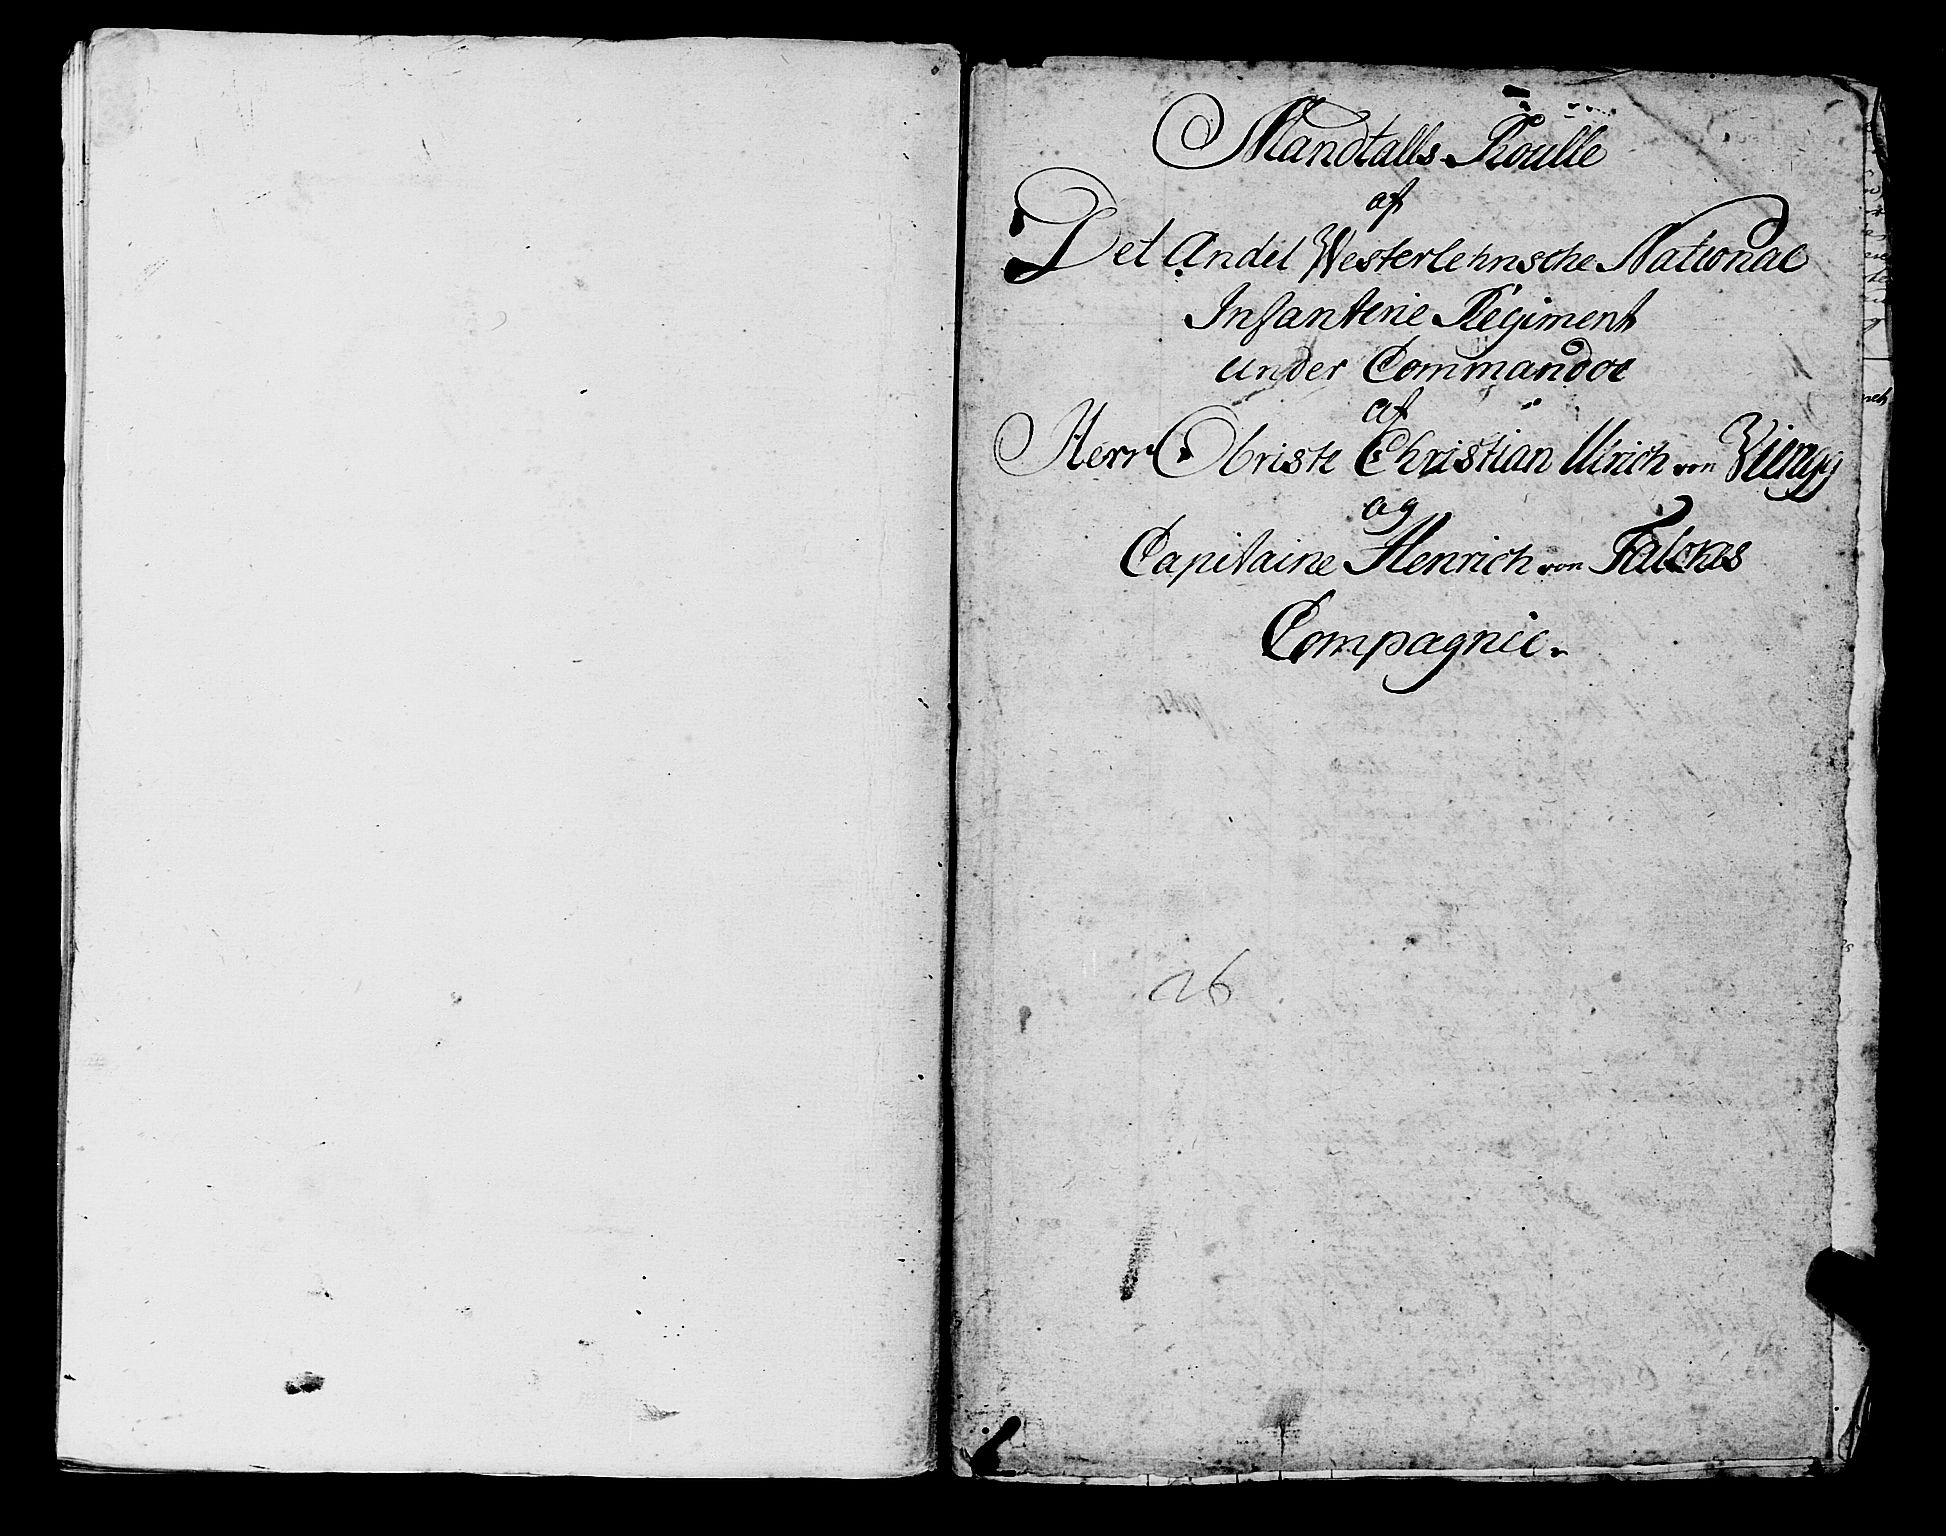 Mandtalls Roulle
af
Det Andel Westerlehnsche National
Infanterie Regiment
under Commandoe
af
Herr Obriste Christian Ulrich von
og
Capitaine Henrich von Falckes
Compagnie.
26